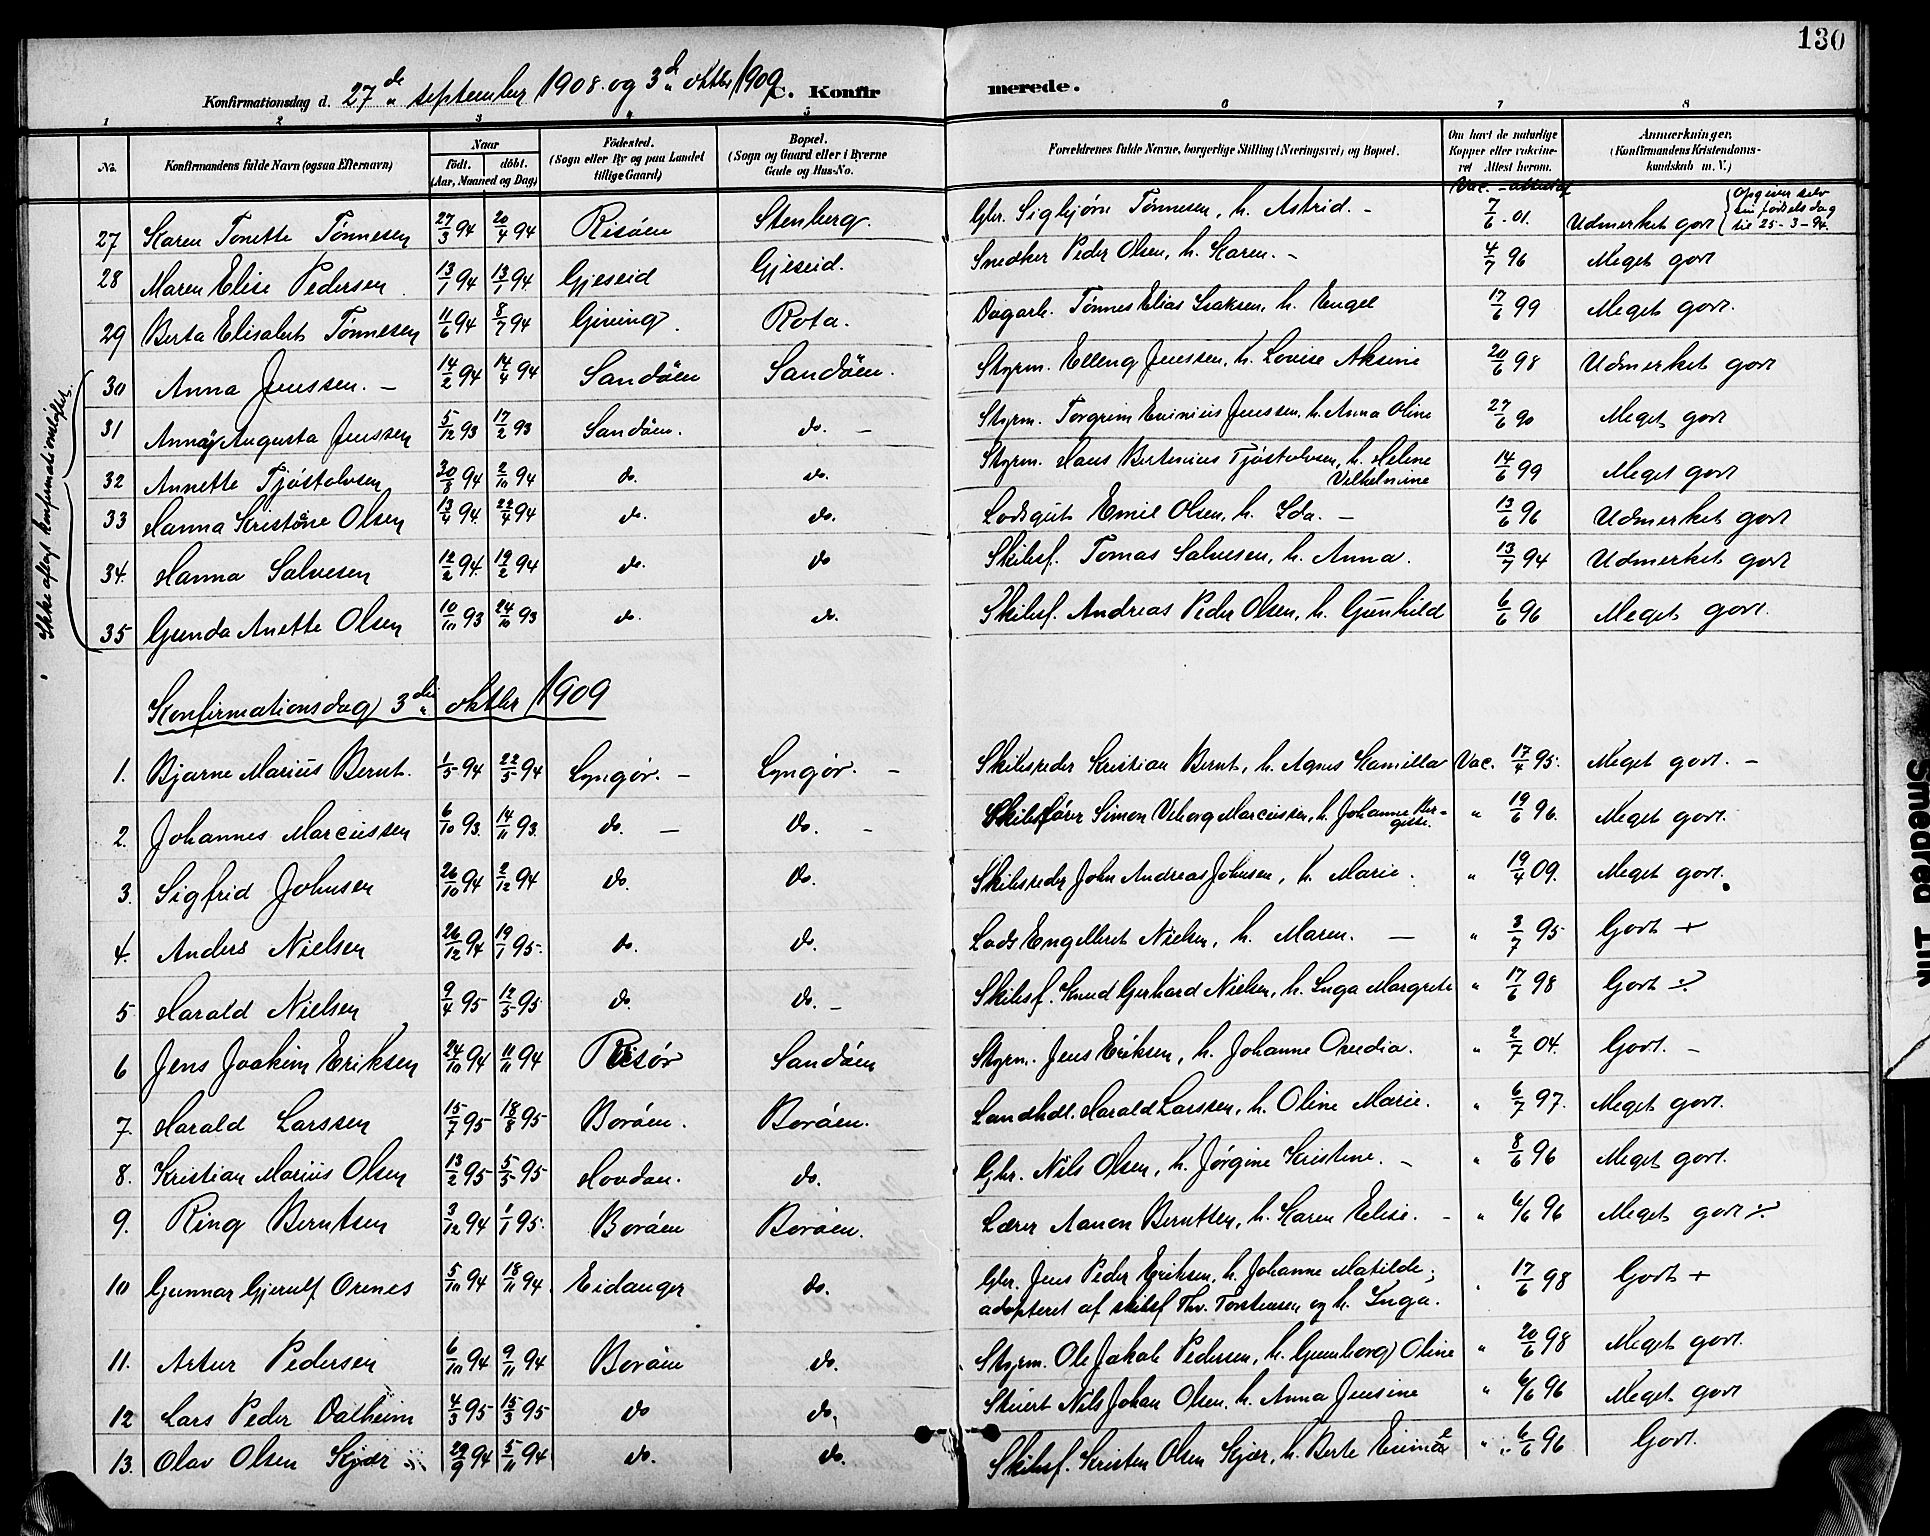 130
Konfirmationsdag d. 27de september 1908 og 3die oktbr 1909 C. Konfirmerede.
1 2 3 4 5 6 7 8
No. Konfirmandens fulde Navn (ogsaa Efternavn) Naar født. døbt. (Aar, Maaned og Dag) Fødested. (Sogn eller By og paa Landet tillige Gaard) Bopæl. (Sogn og Gaard eller i Byerne Gade og Hus-No. Forældrenes fulde Navne, borgerlige Stilling (Næringsvei) og Bopæl. Om havt de naturlige Kopper eller vakcineret Attest herom. Anmærkninger. (Konfirmandens Kristendomskundskab m. V.)
27 Karen Tonette Tønnesen 27/3 94 20/4 94 Risøen Stenberg. Gbr. Sigbjørn Tønnesen, h. Astrid. - Vac.-attest af 7/6 01. Udmerket godt (Opgiver selv sin fødselsdag til 25-3-94.
28 Maren Elise Pedersen 13/1 94 13/1 94 Gjeseid Gjeseid. Snedker Peder Olsen, h. Karen. - 4/7 96 Meget godt
29 Berta Elisabet Tønnesen 11/6 94 8/7 94 Giving. Rota. Dagarb. Tønnes Elias Isaksen, h. Engel 17/6 99 Meget godt.
30 Anna Jenssen. - 14/2 94 14/4 94 Sandøen Sandøen. Styrm. Elleng Jenssen, h. Lovise Aksine 20/6 98 Udmerket godt
31 Annay Augusta Jenssen 5/12 93 17/2 93 Sandøen. do. - Styrm. Torgrim Jenssen, h. Anna Oline 27/6 90 Meget godt
32 Annette Tjøstolvsen 30/8 94 2/10 94 do. do. Styrm. Hans Bertenius Tjøstolvsen, h. Helene Vilhelmine 14/6 99 Meget godt
33 Hanna Kristine Olsen 13/4 94. 22/4 94 do. do. Lodsgut Emil Olsen, h. Ida. - 13/6 96 Udmerket godt
34. Hanna Salvesen 12/2 94. 19/2 94 do. do Skibsf. Tomas Salvesen, h. Anna. 13/7 94 Udmerket godt
35 Gunda Anette Olsen 10/10 93 24/10 93 do. do. Skibsf. Andreas Peder Olsen, h. Gunhild 6/6 96 Meget godt.
Ikke aflagt konfirmationsløfter.
Konfirmationsdag 3die oktbr 1909
1. Bjarne Marius Bernt. 1/5 94 22/5 94 Lyngør. - Lyngør. - Skibsreder Kristian Bernt, h. Agnes Kamilla Vac. 17/4 95. Meget godt. -
2. Johannes Marcussen 6/10 93. 14/11 93. do. - do. - Skibsfører Simon Viborg Marcussen, h. Johanne Bergitte. " 19/6 96. Meget godt.
3. Sigfrid Johnsen 26/10 94 2/12 94 do. do. Skibsreder John Andreas Johnsen, h. Marie. " 19/4 09. Meget godt.
4. Anders Nielsen 26/12 94 19/1 95. do. do. Lods Engelbret Nielsen, h. Maren. - " 3/7 95 Godt +
5 Harald Nielsen 9/4 95 12/5 95 do. do. - Skibsf. Knud Gerhard Nielsen, h. Inga Margrete " 17/6 98 Godt
6 Jens Joakim Eriksen 24/10 94 11/11 94 Risør Sandøen Styrm. Jens Eriksen, h. Johanne Ovedia. " 2/7 04. Godt. -
7. Harald Larssen 15/7 95 18/8 95 Borøen. Borøen. Landhdl. Harald Larssen, h. Oline Marie. " 6/7 97. Meget godt.
8. Kristian Marius Olsen 13/2 95 5/5 95 Hovdan. do. Gbr. Nils Olsen, h. Jørgine Kristine. - " 8/6 96 Meget godt.
9. Ring Berntsen 3/12 94 1/1 95. Borøen Borøen. Lærer Aanon Berntsen, h. Karen Elise. - " 6/6 96 Meget godt
10 Gunnar Gjerulf Orenes 5/10 94 18/11 94. Eidanger do. Gbr. Jens Peder Eriksen, h. Johanne Matilde; " 17/6 98 Godt +
adopteret af skibsf Thv. Torstensen og h. Inga.
11. Artur Pedersen 6/10 94 9/11 94 Borøen do. Styrm. Ole Jakob Pedersen, h. Gunborg Oline " 20/6 98 Meget godt.
12 Lars Peder Dalheim 4/3 95 15/3 95 do do. Stuert Nils Johan Olsen, h. Anna Jensine " 6/6 96 Meget godt
13. Olav Olsen Kjær 29/9 94 5/11 94 do. do. Skibsf. Kristen Olsen Kjær, h. Berte " 6/6 96 Godt.
Smedhed TIR